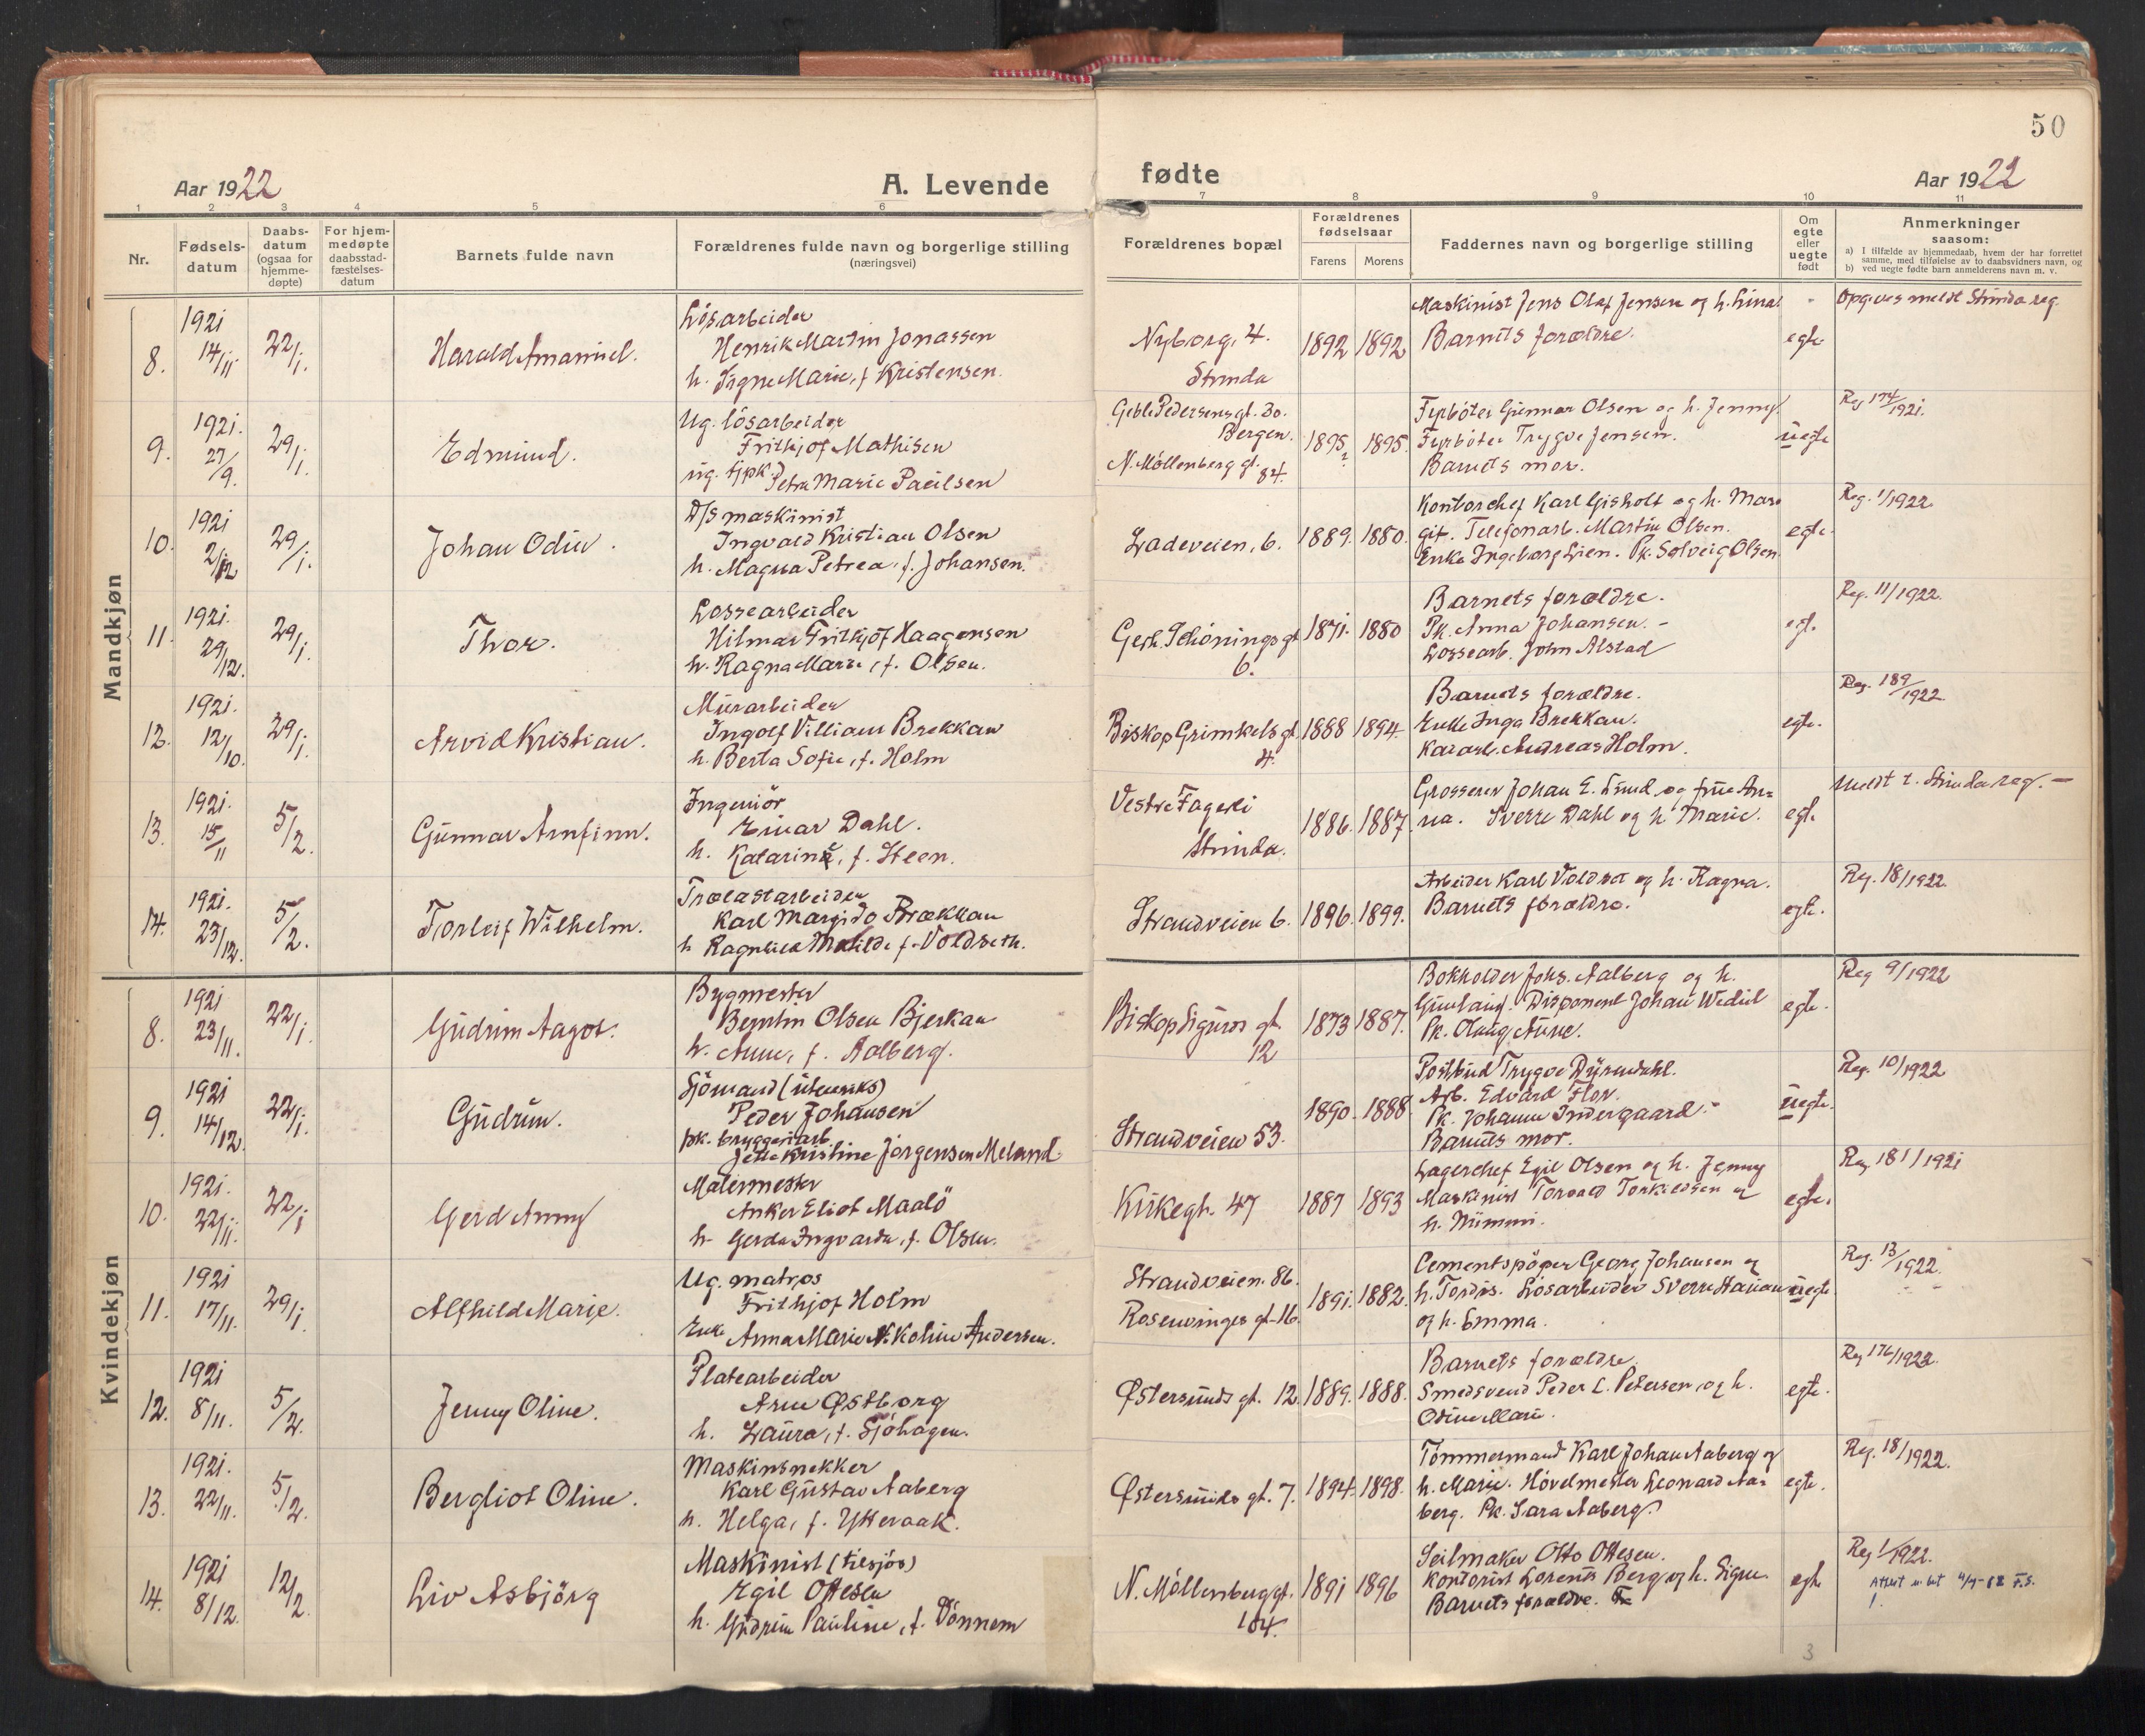 50
Aar 1922
A. Levende
fødte
Aar 1922
1 2 3 4 5 6 7 8 9 10 11
Nr.
Fødsels-
datum
Daabs-
datum
(ogsaa for
hjemme-
døpte)
For hjem-
medøpte
daabsstad-
fæstelses-
datum
Barnets fulde navn
Forældrenes fulde navn og borgerlige stilling
(næringsvei)
Forældrenes bopæl
Forældrenes
fødselsaar
Farens Morens
Faddernes navn og borgerlige stilling
Om
egte
eller
uegte
født
Anmerkninger
saasom:
a) I tilfælde av hjemmedaab, hvem der har forrettet
samme, med tilføielse av to daabsvidners navn, og
b) ved uegte fødte barn anmelderens navn m. v.
Mandkjøn
8. 1921 14/11 22/1. Harald Amanuel.
Løsarbeider
Henrik Martin Jonassen
h. Signe Marie, f. Kristensen.
Nyborg, 4.
Strinda
1892 1892
Maskinist Jens Olaf Jensen og h. Lina.
Barnets forældre.
egte
Opgives meldt Strinda reg.
9. 1921. 27/9. 29/1. Edmund.
Ug. løsarbeider
Frithjof Mathisen
ug. tjpk. Petra Marie Paulsen
Geble Pedersens gt. 30.
Bergen.
N. Møllenberg gt. 84.
1895? 1895.
Fyrbøter Gunnar Olsen og h. Jenny.
Fyrbøter Trygve Jensen.
Barnets mor.
uegte
Reg 174/1921.
10. 1921 2/12 29/1. Johan Odin.
D/S maskinist
Ingvald Kristian Olsen
h. Magna Petrea, f. Johansen.
Ladeveien, 6.
1889. 1880.
Kontorchef Karl Gisholt og h. Mar-
git. Telefonarb. Martin Olsen.
Enke Ingeborg Lien. Pk. Solveig Olsen
egte.
Reg. 1/1922
11. 1921. 29/12. 29/1. Thor.
Lossearbeider
Hilmar Frithjof Haagensen
h. Ragna Marie, f. Olsen.
Gerh. Schønings gt
6.
1871. 1880
Barnets forældre.
Pk. Anna Johansen. -
Lossearb. John Alstad
egt.
Reg. 11/1922.
12. 1921. 12/10. 29/1. Arvid Kristian.
Murarbeider
Ingolf Villiam Brekkan
h. Berta Sofie, f. Holm
Biskop Grimkels gt.
4.
1888 1894.
Barnets forældre.
Enke Inga Brekkan.
Andreas Holm.
egte.
Reg. 189/1922
13. 1921. 15/11 5/2. Gunnar Arnfinn.
Ingeniør
Einar Dahl.
h. Katarina, f. Steen.
Vestre Fagerli
Strinda.
1886. 1887.
Grosserer Johan E. Lund og frue An-
na. Sverre Dahl og h. Marie.
egte
Meldt t. Strinda reg. -
14. 1921. 23/12. 5/2. Torleif Wilhelm.
Trælastarbeider
Karl Margido Brækkan
h Ragnhild Matilde f. Voldseth.
Strandveien 6.
1896. 1899.
Arbeider Karl Voldset og h. Ragna.
Barnets forældre.
egte.
Reg. 18/1922
Kvindekjøn
8. 1921 23/11. 22/1. Gudrun Aagot.
Bygmester
Berntin Olsen Bjerkan
h. Anne, f. Aalberg.
Biskop Sigurds gt.
12
1873 1887.
Bokholder Johs. Aalberg og h.
Gunlaug. Disponent Johan Wedul
Pk. Olaug Aune.
egte.
Reg 9/1922
9. 1921 14/12. 22/1. Gudrun.
Sjømand (utenriks)
Peder Johansen
pk. bryggeriarb.
Jette Kristine Jørgensen Meland.
Strandveien 53.
1890. 1888
Postbud Trygve Dyrendahl.
Arb. Edvard Flor.
Pk. Johanne Indergaard. -
Barnets mor.
uegte.
Reg. 10/1922
10. 1921. 22/11. 22/1 Gerd Anny
Malermester
Anker Eliot Maalø
h. Gerda Ingvarda, f. Olsen.
Kirkegt. 47
1887 1893
Lagerchef Egil Olsen og h. Jenny
Maskinist Torvald Torkildsen og
h. Mimmi.
egte.
Reg. 181/1921
11. 1921 17/11. 29/1. Alfhild Marie.
Ug. matros
Frithjof Holm
Enke Anna Marie Nikoline Andersen.
Strandveien. 86.
Rosenvinges gt-16.
1891. 1882.
Cementstøper Georg Johansen og
h. Tordis. Løsarbeider Sverre
og h. Emma.
uegte
Reg. 13/1922.
12. 1921 8/11. 5/2. Jenny Oline.
Platearbeider
Arne Østborg
h. Laura, f. Sjøhagen.
Østersunds gt. 12.
1889. 1888.
Barnets forældre.
Smedsvend Peder L. Petersen og h.
Odine Marie.
egte.
Reg 176/1922.
13. 1921. 22/11. 5/2. Bergliot Oline.
Maskinsnekker
Karl Gustav Aaberg
h. Helga, f. Ytteraak.
Østersunds gt. 7.
1894. 1898.
Tømmermand Karl Johan Aaberg og
h. Marie. Høvelmester Leonard Aa-
berg. Pk. Sara Aaberg.
egte.
Reg. 18/1922.
14. 1921 8/12. 12/2. Liv Asbjørg
Maskinist (tilsjøs)
Egil Ottesen
h. Gudrun Pauline, f. Dønnem
N. Møllenberg gt.
104.
1891 1896
Seilmaker Otto Ottesen.
Kontorist Lorents Berg og h. Signe
Barnets forældre.
egte
Reg 1/1922.
Attest u. bet 4/4-52 F.S.
3